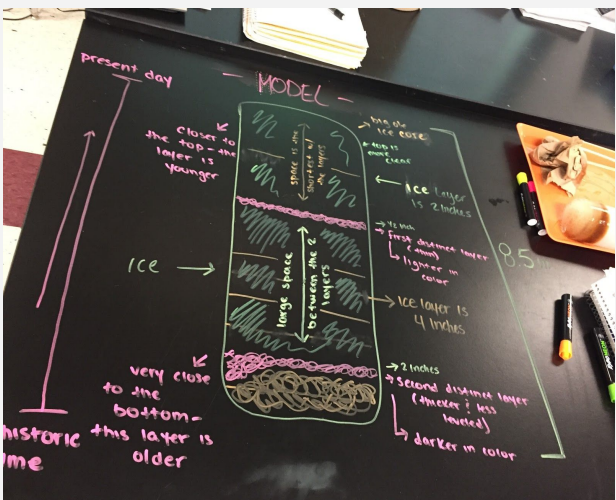 present day
- MODEL -
closer to
the top - the
layer is
younger
space is the
shortest w/
the layers
ice core
* top is
more
clear
Ice layer
is 2 inches
1/2 inch
First distinct layer
(thin)
lighter in
color
ICE
large space
between the 2
layers
8.5
Ice layer is
4 inches
very close
to the
bottom -
this layer is
older
2 inches
Second distinct layer
(thicker & less
leveled)
darker in color
historic
me